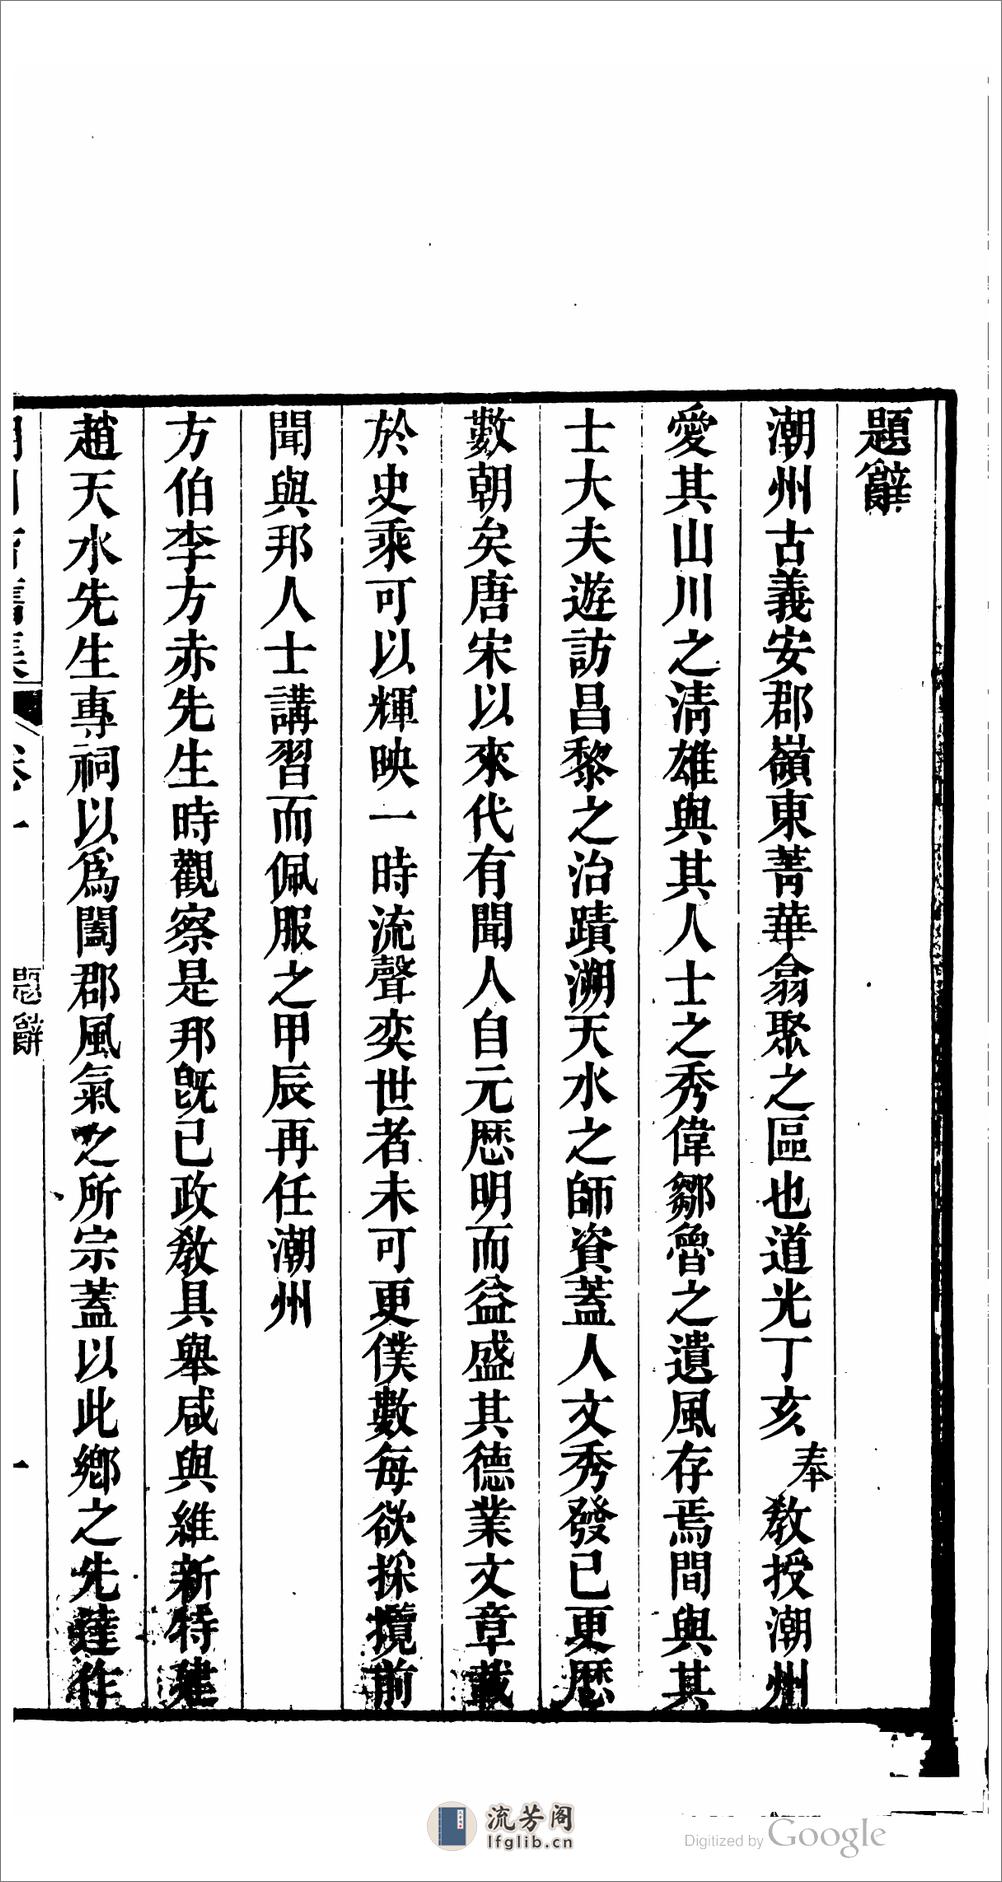 題辭
潮州古義安郡嶺東菁華翕聚之區也道光丁亥奉教授潮州
愛其山川之清雄與其人士之秀偉鄒魯之遺風存焉間與其
士大夫遊訪昌黎之治蹟溯天水之師資蓋人文秀發已更歷
數朝矣唐宋以來代有聞人自元歷明而益盛其德業文章載
於史乘可以輝映一時流聲奕世者未可更僕數每欲採攬前
聞與邦人士講習而佩服之甲辰再任潮州
方伯李方赤先生時觀察是邦既已政教具舉咸與維新特建
趙天水先生專祠以為闔郡風氣之所宗蓋以此鄉之先達作
潮州耆舊集 卷一 題辭 一
流芳阁
lfglib.cn
Digitized by Google